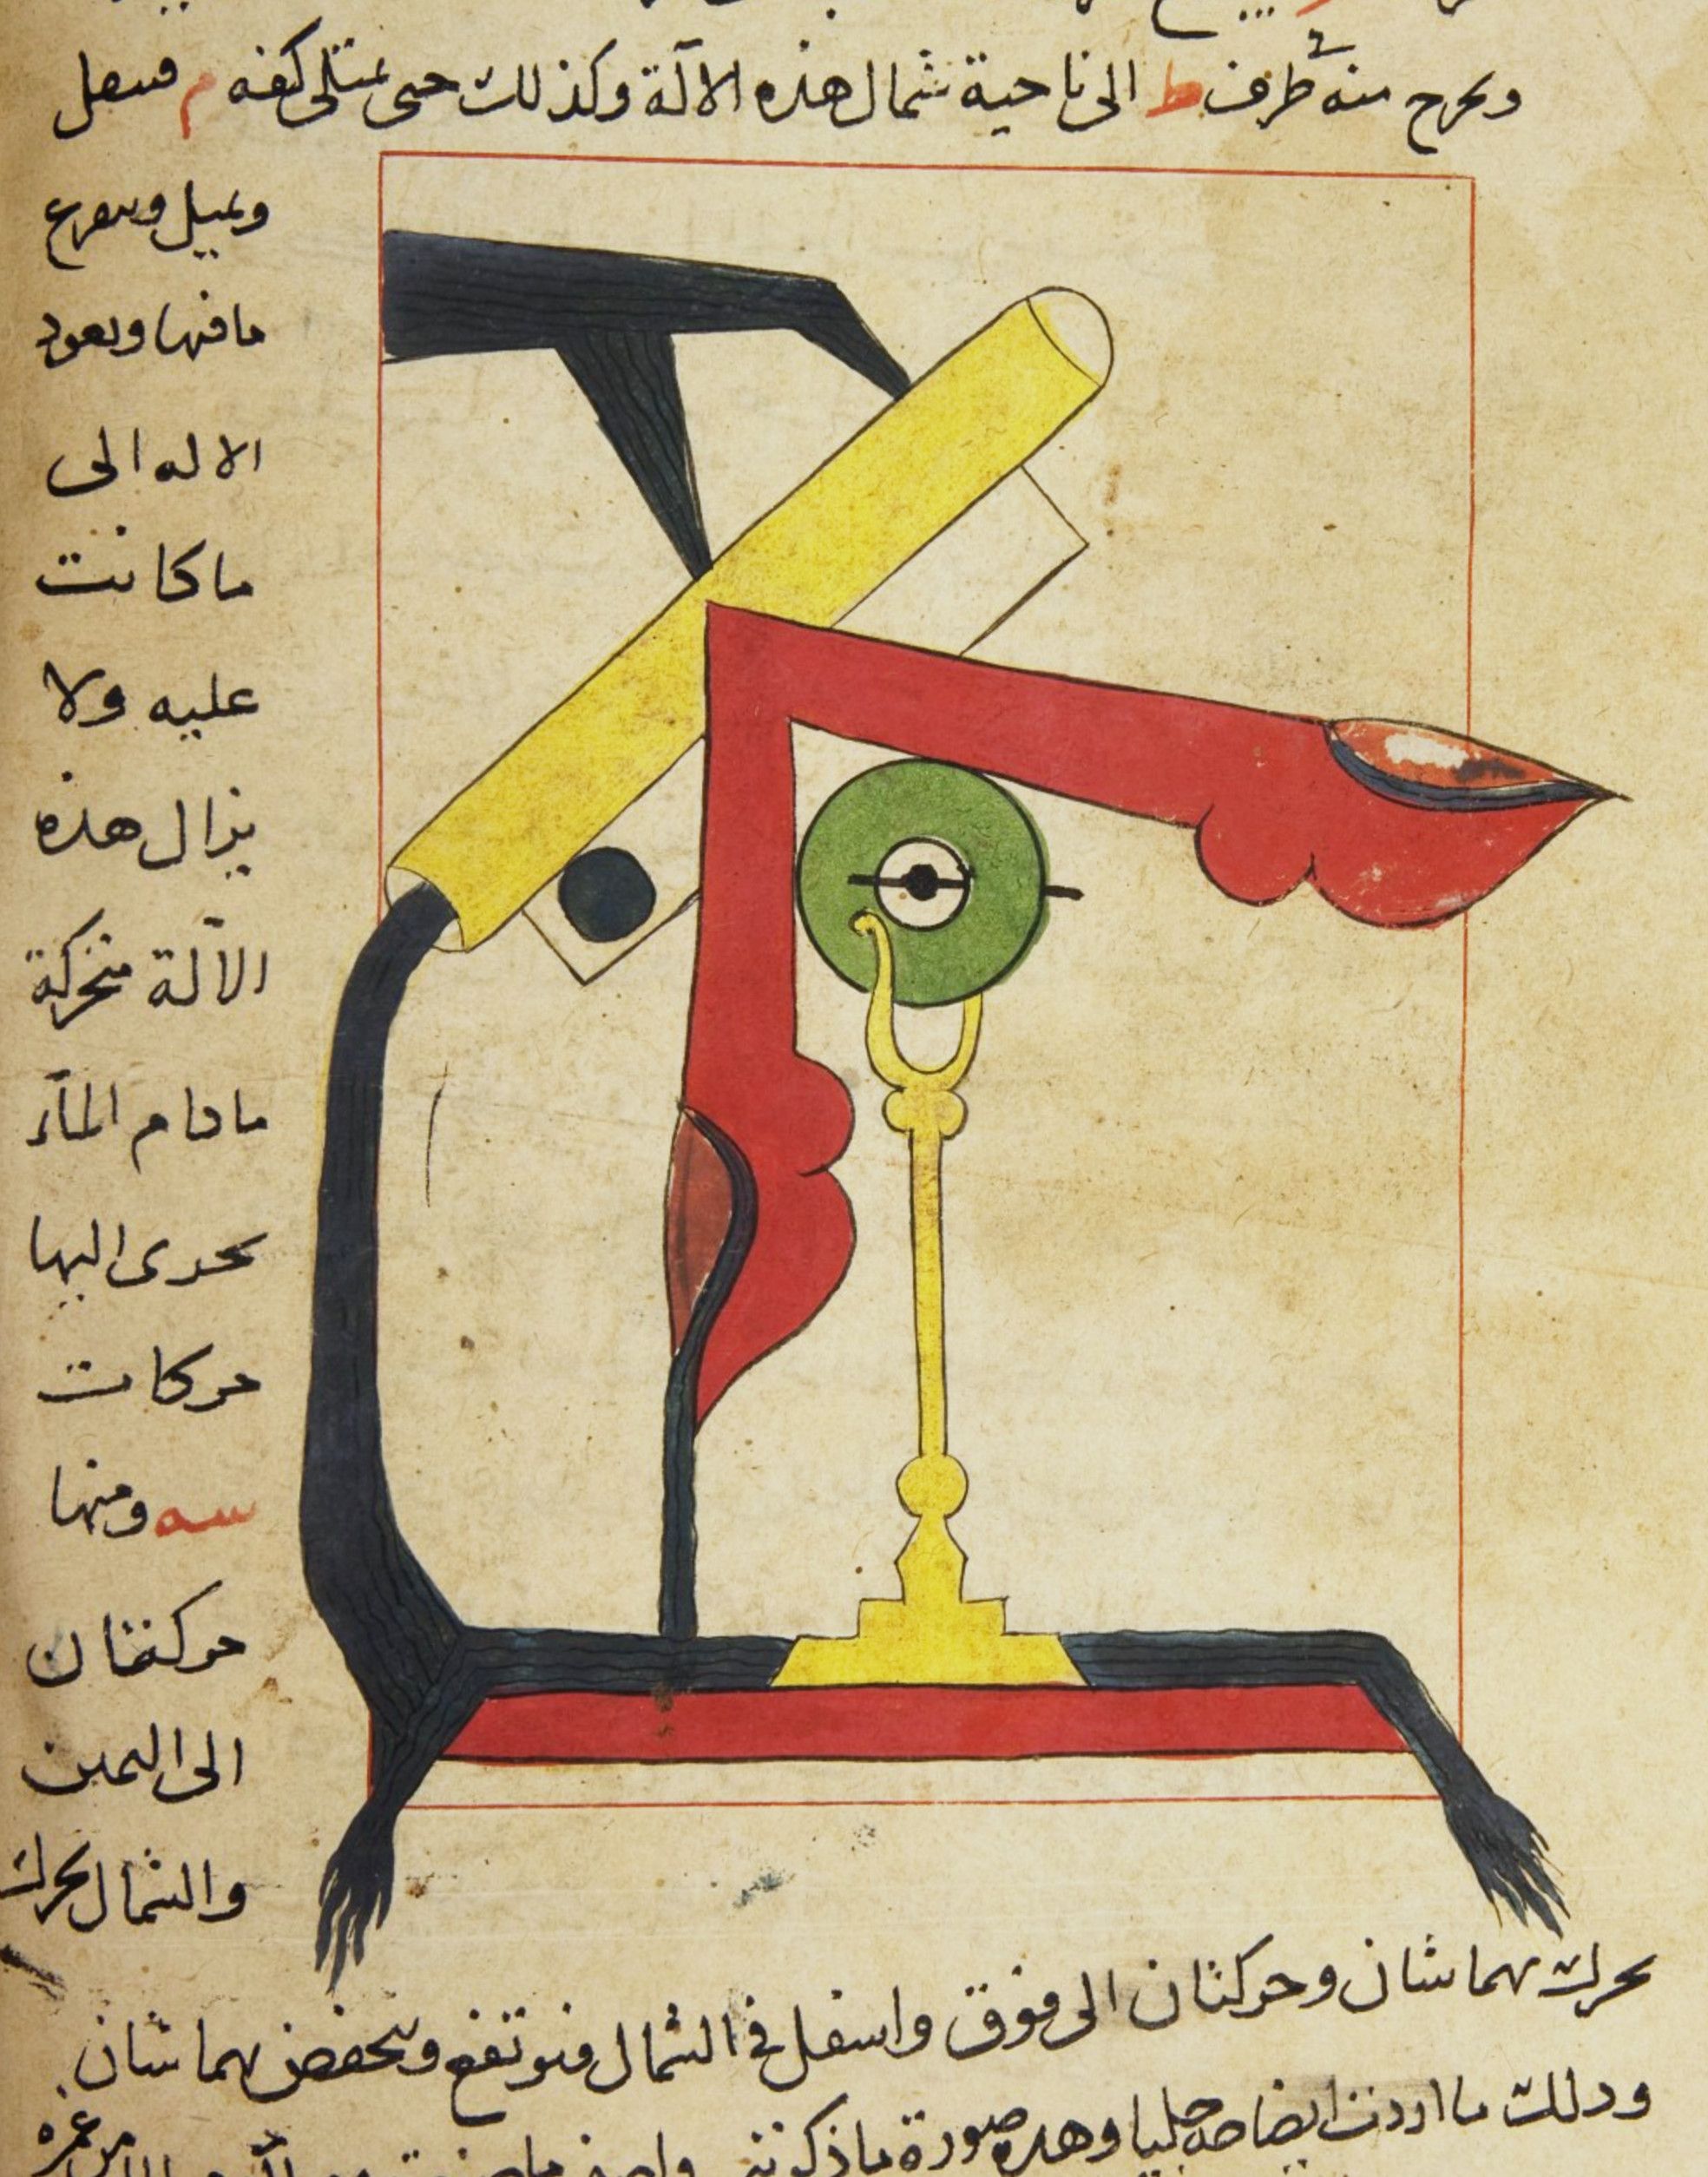 ويخرج منه طرف ط الى ناحية شمال هذه الآلة وكذلك حتى تمتلى كفة م فتثقل
وتميل ويتفرغ
ما فيها وتعود
الاله الى
ما كانت
عليه ولا
يزال هذه
الآلة متحركة
ما دام المآء
يجرى اليها
حركات
ومنها
حركتان
الى اليمين
والشمال يتحرك
بهما شان وحركتان الى فوق واسفل فى الشمال فيرتفع وينخفض بهما شان
وذلك ما اردت ايضاحه جليا وهذه صورة ما ذكرته